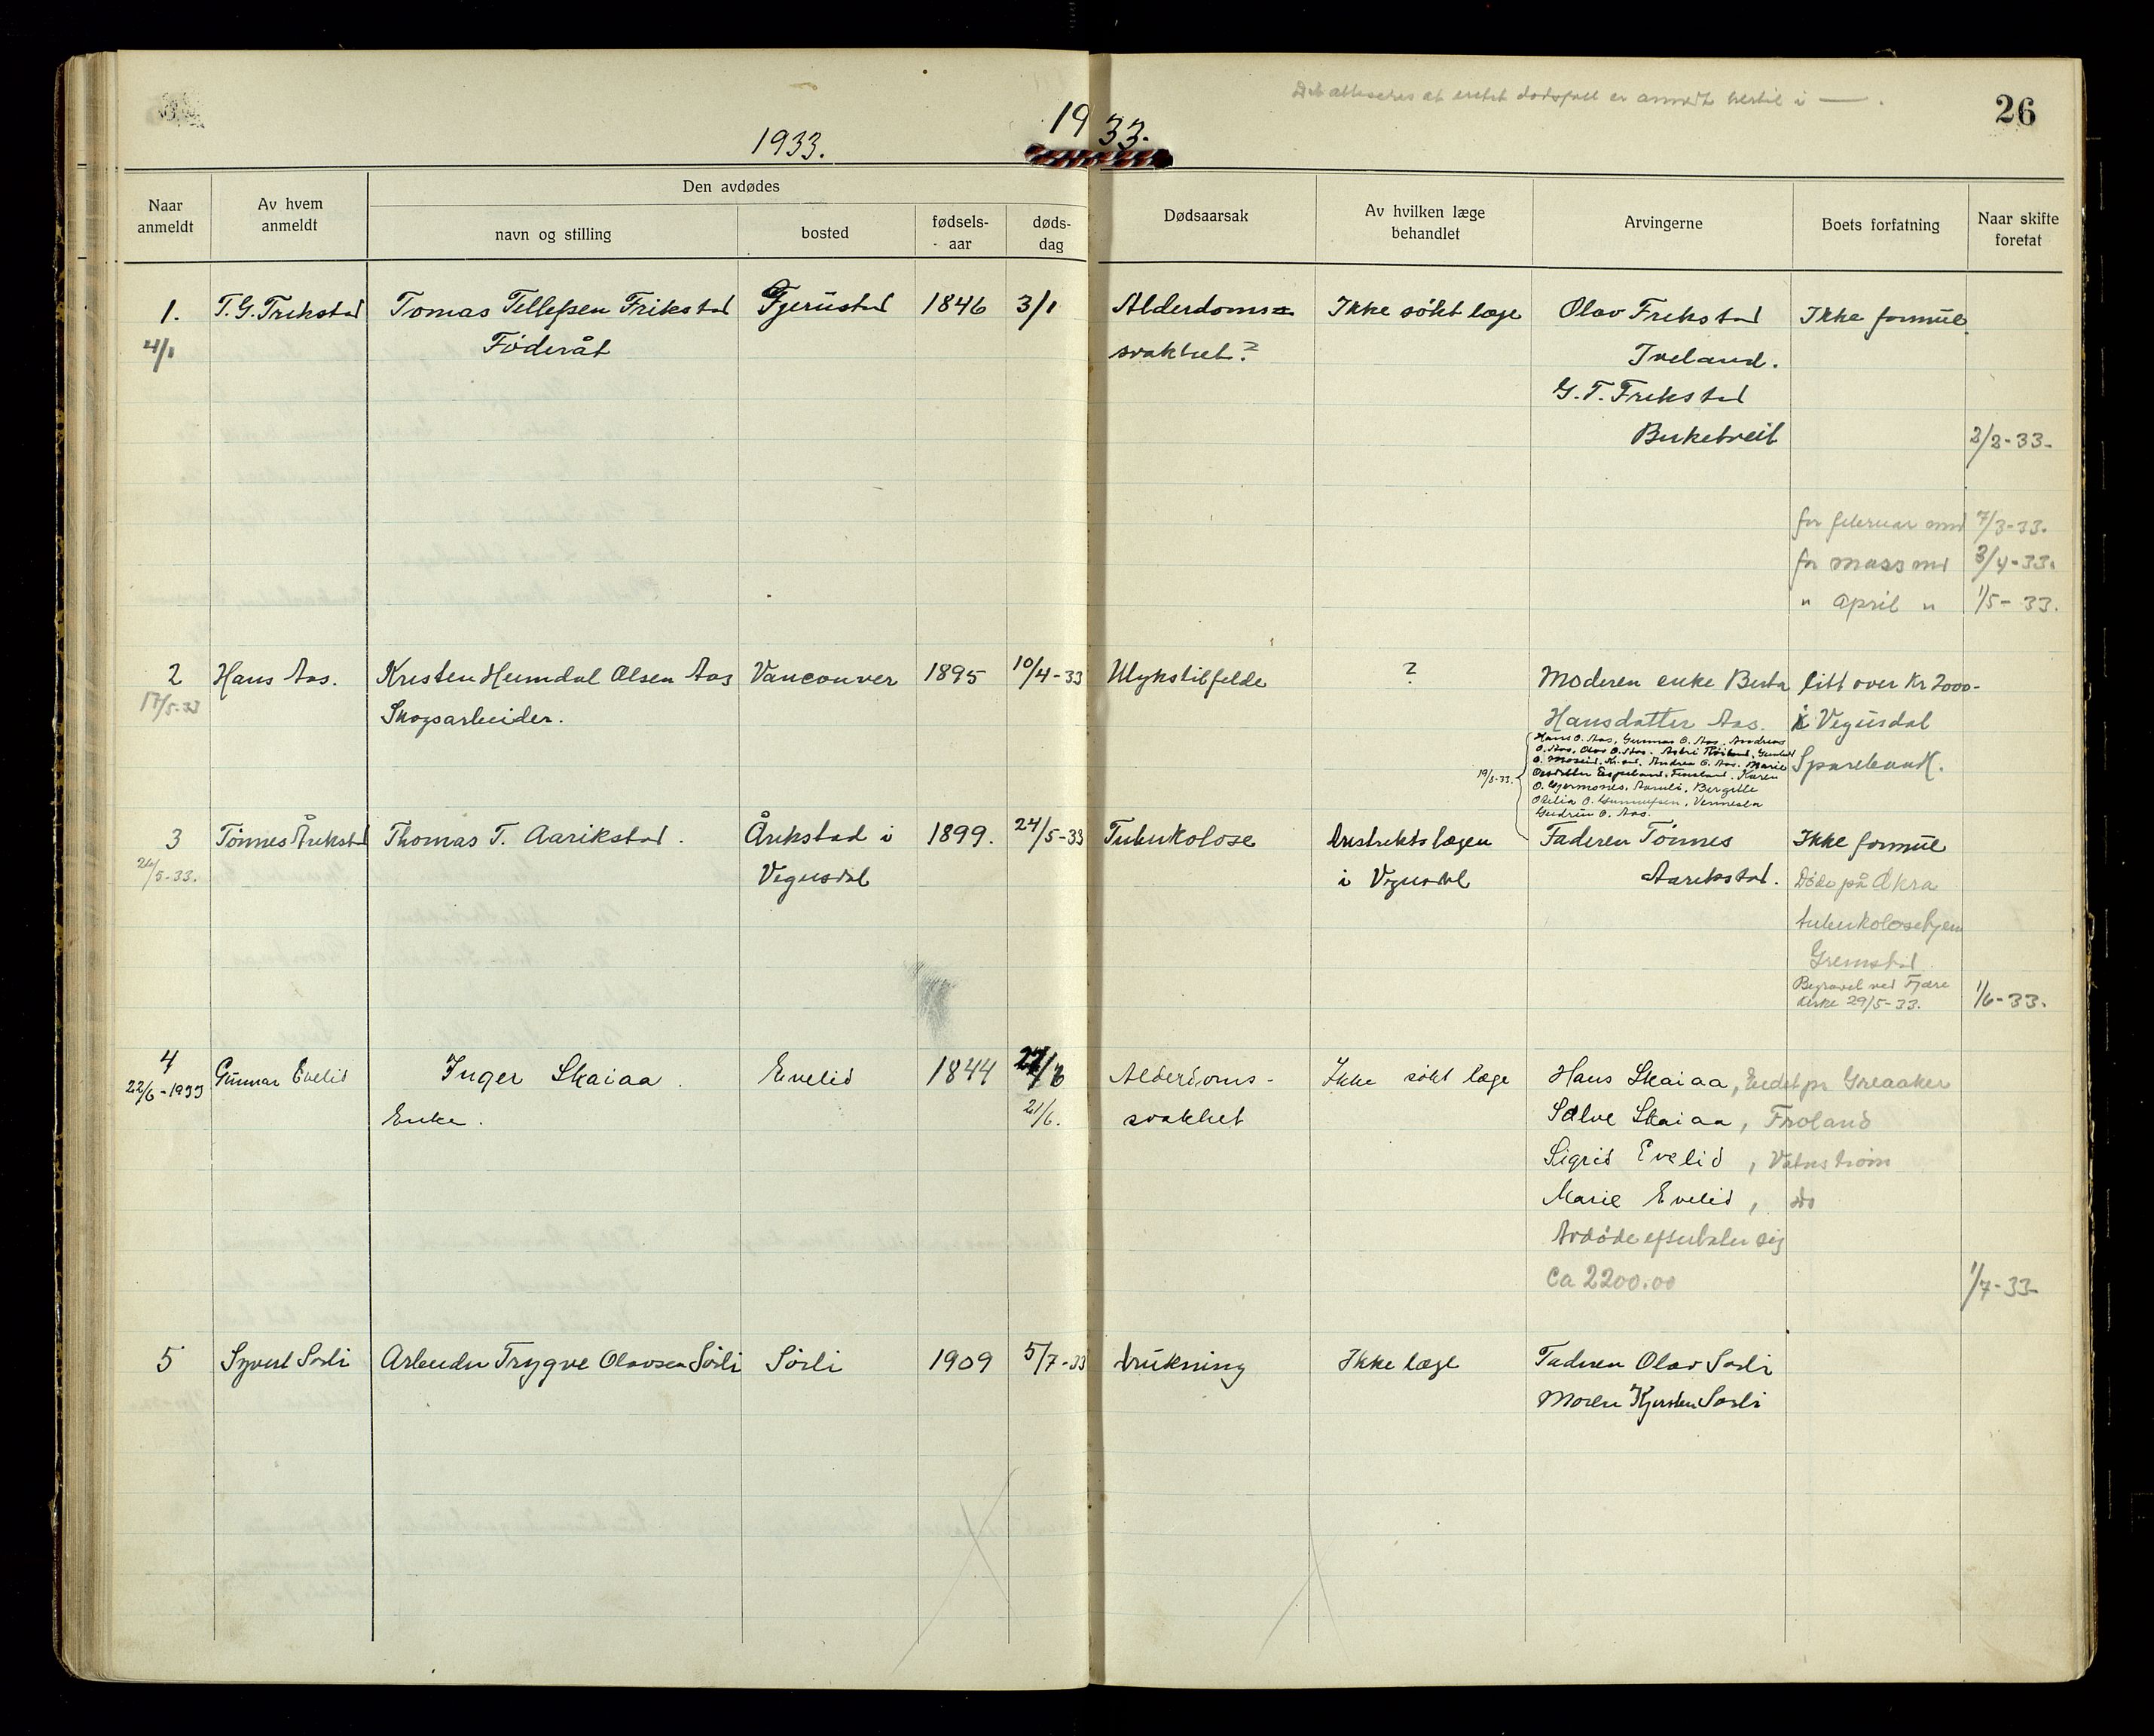 Det attesteres at intet dødsfall er anmeldt hertil i —.
26
1933.
1933.
Naar anmeldt
Av hvem anmeldt
Den avdødes
navn og stilling
bosted
fødsels-aar
døds-dag
Dødsaarsak
Av hvilken læge behandlet
Arvingerne
Boets forfatning
Naar skifte foretat
1. T. G. Frikstad Tomas Tellefsen Frikstad Fjerustad 1846 3/1 Alderdoms Ikke søkt læge Olav Frikstad Ikke formue
4/1 Føderåt svakhet? Iveland.
G. T. Frikstad
Birketveit 2/2-33-
for februar md 7/3-33.
for mars md 3/4-33.
" april " 1/5-33.
2 Hans Aas. Kristen Heimdal Olsen Aas Vancouver 1895 10/4-33 Ulykstilfelde ? Moderen enke Berta litt over Kr 2000-
17/5-33 Skogsarbeider. Hansdatter Aas. i Vegusdal
Hans O. Aas, Gunnar O. Aas, Andreas
O. Aas, Olav O. Aas.
Andrea O. Aas. Marie Sparebank.
19/8-33. Karen
Bergitte
Vennesla
Gudrun O. Aas.
3 Tønnes Årikstad Thomas T. Aarikstad. Årikstad i 1899. 24/5-33 Tuberkolose Distriktslægen Faderen Tønnes Ikke formue
26/5-33. Vegusdal i Vegusdal Aarikstad. Døde på Åkra
tuberkolosehjem
Grimstad
Begravet ved Fjære
kirke 29/5-33. 1/6-33.
4 Gunnar Evelid Inger Skaiaa. Evelid 1844 Alderdoms- Ikke søkt læge Hans Skaiaa, Eidet pr Greaaker
22/6-1933 Enke. 21/6. svakhet Salve Skaiaa, Froland
Sigrid Evelid, Vatnstrøm
Marie Evelid, do
Avdøde efterlater sig
Ca 2200.00 1/7-33-
5 Syvert Sørli Arbeider Trygve Olavsen Sørli Sørli 1909 5/7-33 Drukning Ikke læge Faderen Olav Sørli
Moren Kjersten Sørli